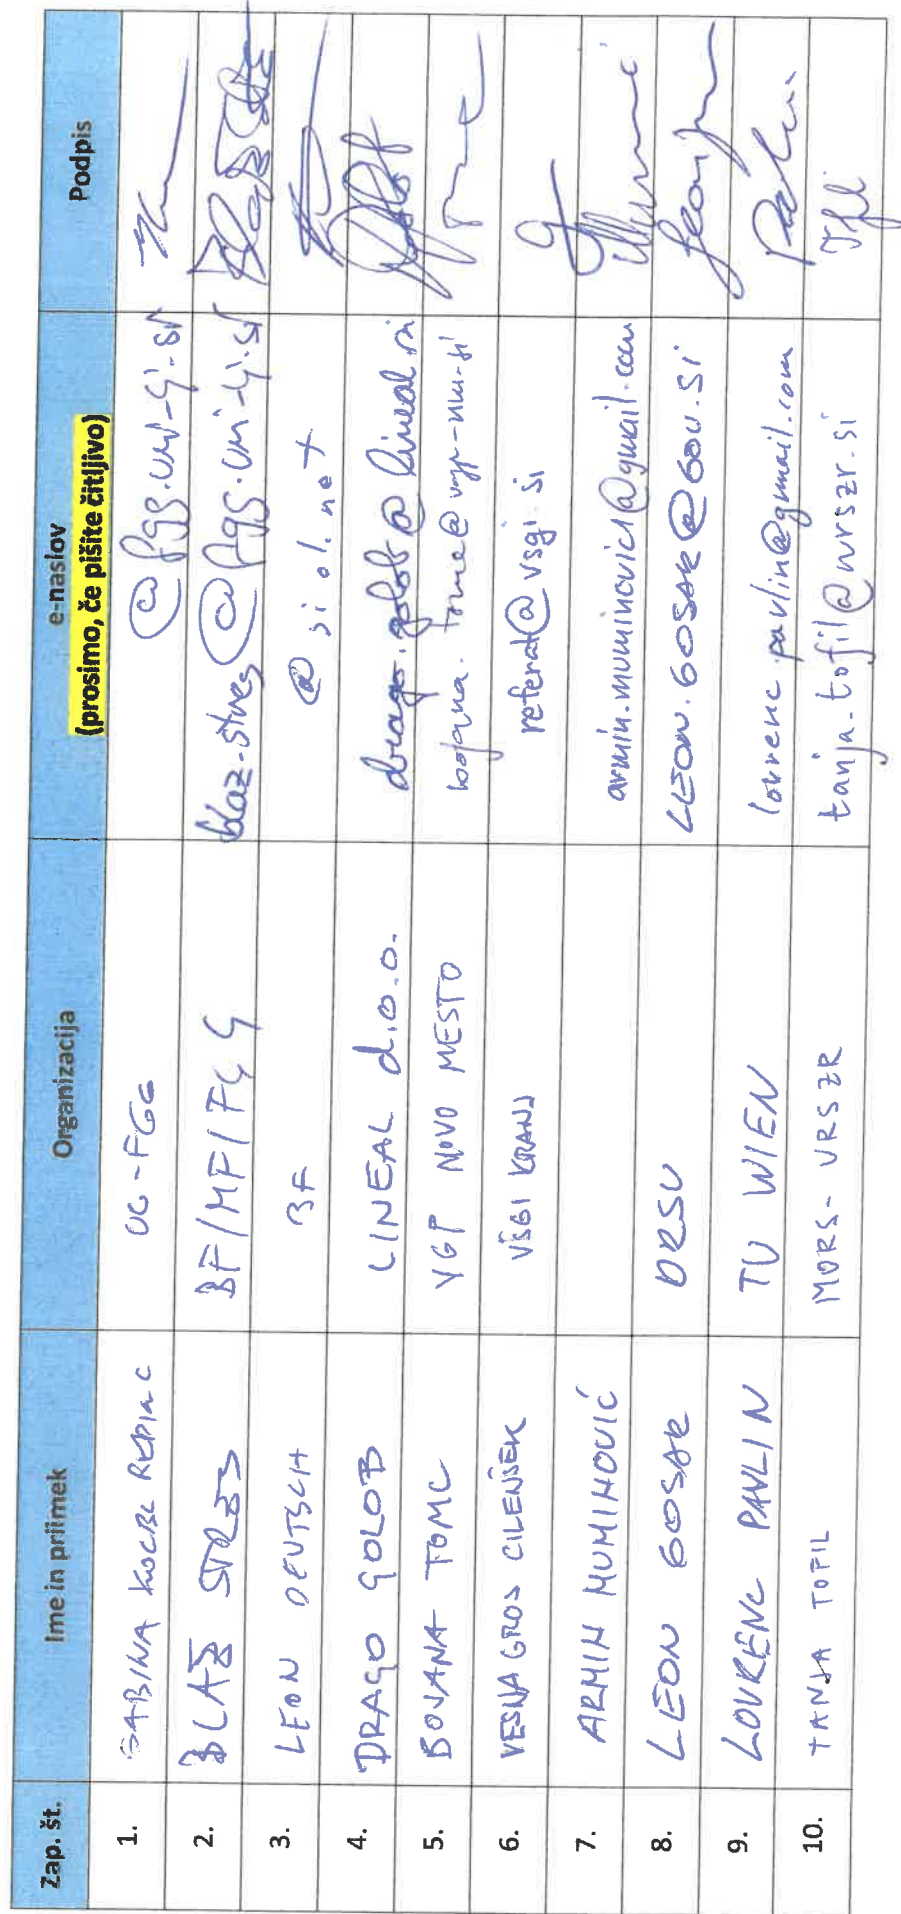 Zap. št. Ime in priimek Organizacija e-naslov Podpis
(prosimo, če pišite čitljivo)
1. SABINA KOCBEK UG-FGG @fgg.uni-lj.si
2. BLAŽ BF/MF/FGG @fgg.uni-lj.si
3. LEON DEUTSCH BF @siol.net
4. DRAGO GOLOB LINEAL d.o.o. drago.golob@lineal.si
5. BOJANA TOMC VGP NOVO MESTO
6. VESNA GROS CILENŠEK VŠGI KRANJ referat@vsgi.si
7. ARMIN MUMINOVIĆ armin.muminovic1@gmail.com
8. LEON GOSAR DRSV LEON.GOSAR@GOV.SI
9. LOVRENC PAVLIN TU WIEN lovrenc.pavlin@gmail.com
10. TANJA TOFIL MORS-URSZR tanja.tofil@urszr.si